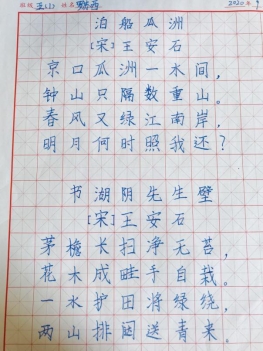 班级 五(1) 姓名 2020年9
泊船瓜洲
[宋]王安石
京口瓜洲一水间,
钟山只隔数重山。
春风又绿江南岸,
明月何时照我还?
书湖阴先生壁
[宋]王安石
茅檐长扫净无苔,
花木成畦手自栽。
一水护田将绿绕,
两山排闼送青来。